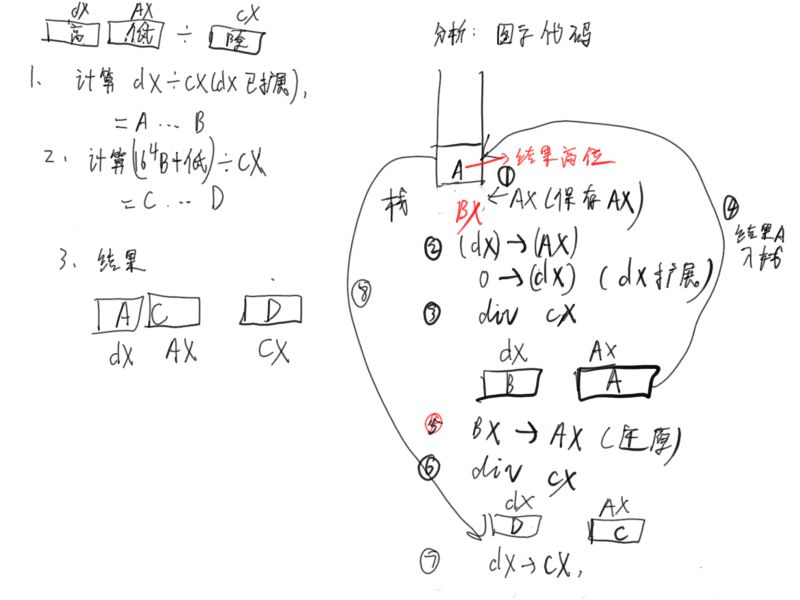 dX AX CX
高 低 ÷ 除
1、计算 dX÷CX(dX已扩展),
= A ... B
2、计算(16⁴B+低)÷CX
= C ... D
3、结果
A C D
dX AX CX
分析: 图示代码
A → 结果高位
①
栈 BX ← AX(保存AX)
④ 结果A
入栈
② (dX)→(AX)
0→(dX) (dX扩展)
⑧
③ div CX
dX AX
B A
⑤ BX → AX (还原)
⑥ div CX
dX AX
D C
⑦ dX→CX,